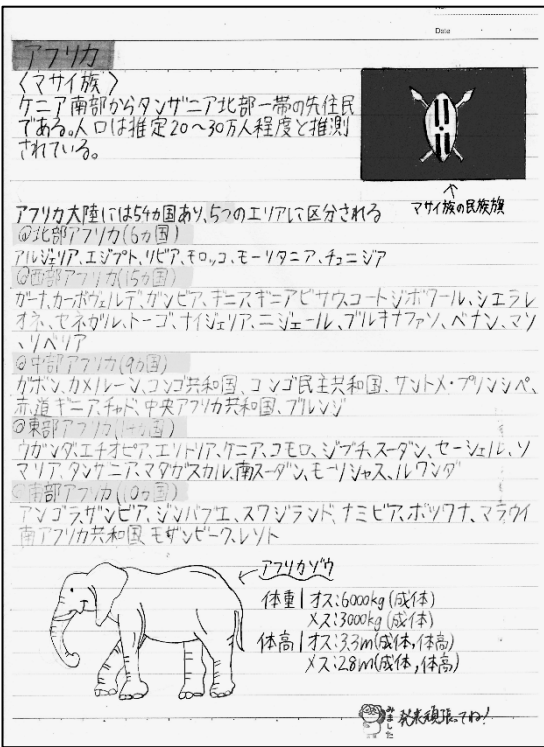 Date
アフリカ
〈マサイ族〉
ケニア南部からタンザニア北部一帯の先住民
である。人口は推定20〜30万人程度と推測
されている。
↑
マサイ族の民族旗
アフリカ大陸には54カ国あり、5つのエリアに区分される
◎北部アフリカ(6カ国)
アルジェリア、エジプト、リビア、モロッコ、モーリタニア、チュニジア
◎西部アフリカ(15カ国)
ガーナ、カーボヴェルデ、ガンビア、ギニア、ギニアビサウ、コートジボワール、シエラレ
オネ、セネガル、トーゴ、ナイジェリア、ニジェール、ブルキナファソ、ベナン、マリ
、リベリア
◎中部アフリカ(9カ国)
ガボン、カメルーン、コンゴ共和国、コンゴ民主共和国、サントメ・プリンシペ、
赤道ギニア、チャド、中央アフリカ共和国、ブルンジ
◎東部アフリカ(14カ国)
ウガンダ、エチオピア、エリトリア、ケニア、コモロ、ジブチ、スーダン、セーシェル、ソ
マリア、タンザニア、マダガスカル、南スーダン、モーリシャス、ルワンダ
◎南部アフリカ(10カ国)
アンゴラ、ザンビア、ジンバブエ、スワジランド、ナミビア、ボツワナ、マラウイ
南アフリカ共和国、モザンビーク、レソト
アフリカゾウ
体重|オス:6000kg(成体)
メス:3000kg(成体)
体高|オス:3.3m(成体,体高)
メス:2.8m(成体,体高)
みました
発表頑張ってね!